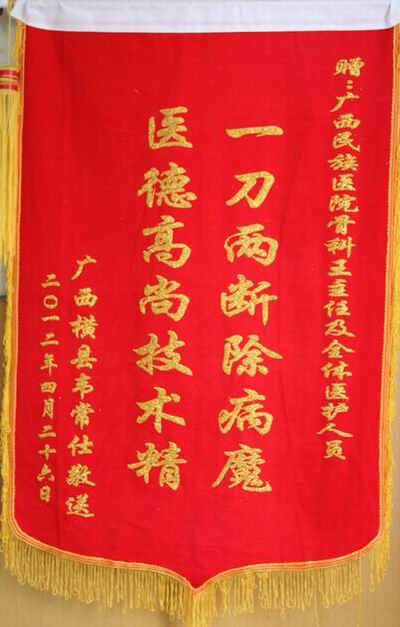 赠:广西民族医院骨科王主任及全体医护人员
一刀两断除病魔
医德高尚技术精
广西横县韦常仕敬送
二〇一二年四月二十六日